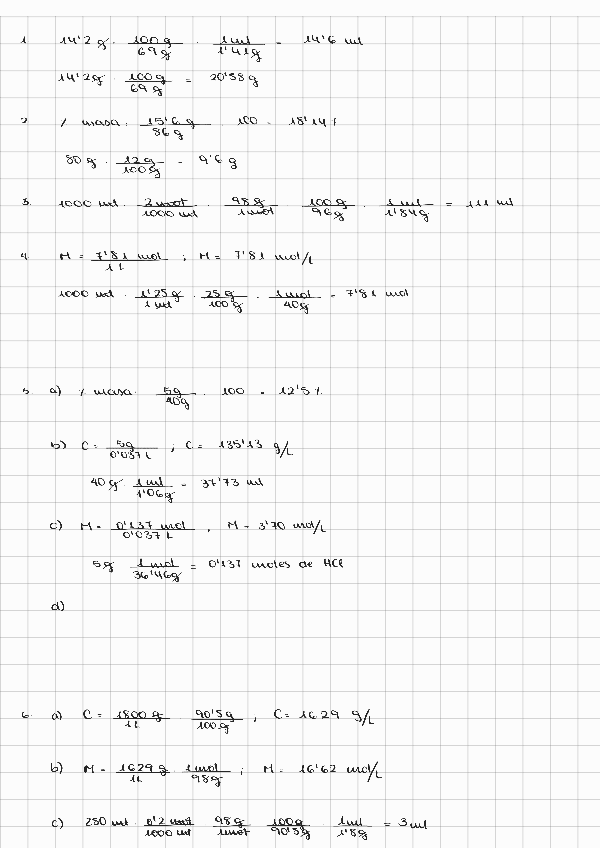 1. 14'2 g · 100 g / 69 g · 1 ml / 1'41 g = 14'6 ml
14'2 g · 100 g / 69 g = 20'58 g
2. % masa · 15'6 g / 86 g · 100 = 18'14 %
80 g · 12 g / 100 g = 9'6 g
3. 1000 ml · 2 mol / 1000 ml · 98 g / 1 mol · 100 g / 96 g · 1 ml / 1'84 g = 111 ml
4. M = 7'81 mol / 1 L ; M = 7'81 mol/L
1000 ml · 1'25 g / 1 ml · 25 g / 100 g · 1 mol / 40 g = 7'81 mol
5. a) % masa · 5 g / 40 g · 100 = 12'5 %
b) C = 5 g / 0'037 L ; C = 135'13 g/L
40 g · 1 ml / 1'06 g = 37'73 ml
c) M = 0'137 mol / 0'037 L , M = 3'70 mol/L
5 g 1 mol / 36'46 g = 0'137 moles de HCl
d)
6. a) C = 1800 g / 1 L 90'5 g / 100 g ; C = 1629 g/L
b) M = 1629 g / 1 L · 1 mol / 98 g ; M = 16'62 mol/L
c) 250 ml · 0'2 mol / 1000 ml 98 g / 1 mol 100 g / 90'5 g · 1 ml / 1'8 g = 3 ml